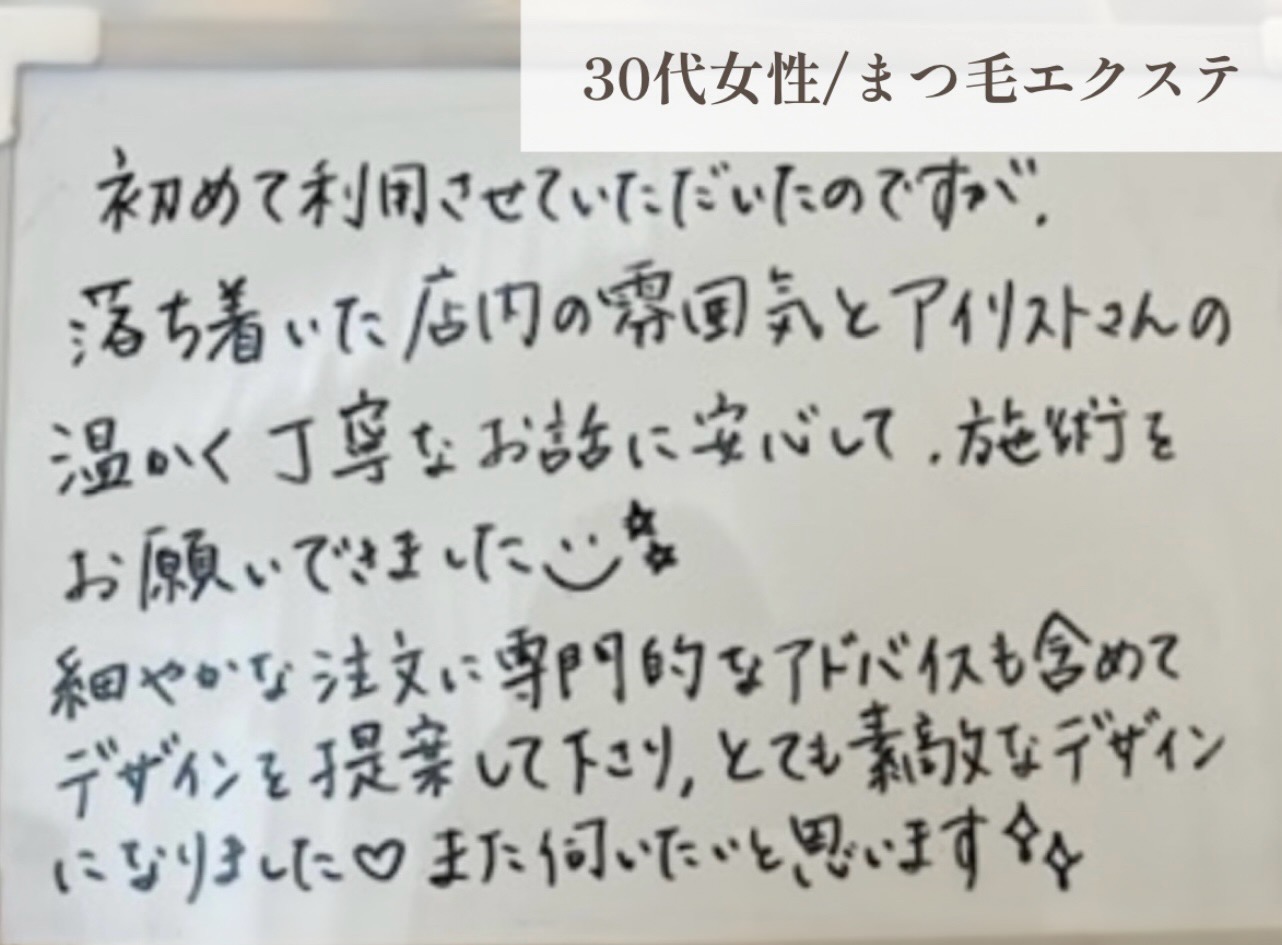 30代女性/まつ毛エクステ
初めて利用させていただいたのですが、
落ち着いた店内の雰囲気とアイリストさんの
温かく丁寧なお話に安心して、施術を
お願いできました
細やかな注文に専門的なアドバイスも含めて
デザインを提案して下さり、とても素敵なデザイン
になりました♡また伺いたいと思います